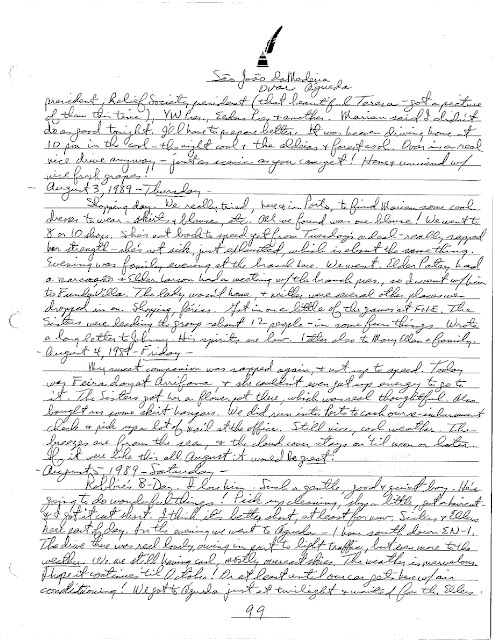 São João da Madeira
Ovar Agueda
president, Relief Society president (that beautiful Teresa - got a picture
of them this time), YW Pres, Eden's Pres & another. Marian said I didn't
do as good tonight. I'll have to prepare better. It was heaven driving home at
10 pm in the cool - the night cool & the and forest cool. Ovar is a real
nice drive anyway - just as scenic as you can get! Home, unwind w/
nice fresh grapes!
- August 3, 1989 - Thursday -
Shopping day. We really tried, here & in Porto, to find Marian some cool
dresses to wear - skirts & blouses, etc. All we found was one blouse! We went to
8 or 10 shops. She's not back to speed yet from Tuesday's ordeal - really sapped
her strength - she's not sick, just exhausted, which is about the same thing.
Evening was family evening at the branch here. We went. Elder had
a & Elder Larson had a meeting w/ the branch pres., so I went w/ him
to The lady wasn't home, & neither were several other places we
dropped in on. Got in on a little of the games at FHE. The
Sisters were leading the group - about 12 people - in some fun things. Wrote
a long letter to Johnny. His spirits are low. Letter also to Mary Ellen & family.
- August 4, 1989 - Friday -
My sweet companion was sapped again, & not up to speed. Today
was Feira day at Arrifana, & she couldn't even get up energy to go to
it. The Sisters got her a flower pot there, which was real thoughtful. Also
bought us some skirt hangers. We did run into Porto to cash our reimbursement
check & pick up a lot of mail at the office. Still nice, cool weather. The
breezes are from the sea, & the cloud cover stays on 'til noon or later.
If it were like this all August it would be great.
- August 5, 1989 - Saturday -
Robbie's B-Day. I love him. Such a gentle, good & quiet boy. He's
going to do wonderful things! Pick up cleaning, shop a little, get a haircut -
& I got it cut short. I think it's better short, at least for now. Sisters & Elders
here part of day. In the evening we went to Agueda - 1 hour south down EN-1.
The drive there was real lovely, owing in part to light traffic, but even more to the
weather. We are still having cool, mostly overcast skies. The weather is marvelous.
I hope it continues 'til October! Or at least until our car gets here w/ air
conditioning! We got to Agueda just at twilight & waited for the Elders.
99